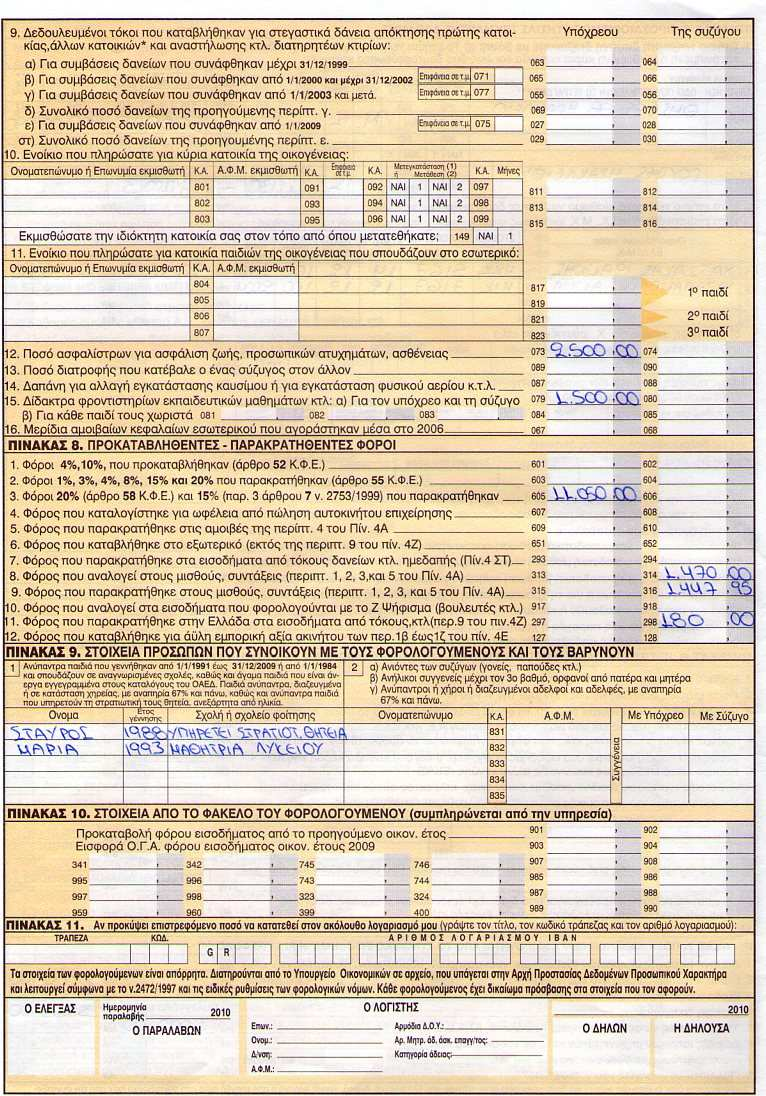 9. Δεδουλευμένοι τόκοι που καταβλήθηκαν για στεγαστικά δάνεια απόκτησης πρώτης κατοι- Υπόχρεου Της συζύγου
κίας,άλλων κατοικιών* και αναστήλωσης κτλ. διατηρητέων κτιρίων:
α) Για συμβάσεις δανείων που συνάφθηκαν μέχρι 31/12/1999 063 , 064 ,
β) Για συμβάσεις δανείων που συνάφθηκαν από 1/1/2000 και μέχρι 31/12/2002 Επιφάνεια σε τ.μ. 071 065 , 066 ,
γ) Για συμβάσεις δανείων που συνάφθηκαν από 1/1/2003 και μετά. Επιφάνεια σε τ.μ. 077 055 , 056 ,
δ) Συνολικό ποσό δανείων της προηγούμενης περίπτ. γ. 069 , 070 ,
ε) Για συμβάσεις δανείων που συνάφθηκαν από 1/1/2009 Επιφάνεια σε τ.μ. 075 027 , 028 ,
στ) Συνολικό ποσό δανείων της προηγουμένης περίπτ. ε. 029 , 030 ,
10. Ενοίκιο που πληρώσατε για κύρια κατοικία της οικογένειας:
Ονοματεπώνυμο ή Επωνυμία εκμισθωτή Κ.Α. Α.Φ.Μ. εκμισθωτή Κ.Α. Επιφάνεια σε τ.μ. Κ.Α. Μετεγκατάσταση (1) ή Μετάθεση (2) Κ.Α. Μήνες
801 091 092 ΝΑΙ 1 ΝΑΙ 2 097 811 , 812 ,
802 093 094 ΝΑΙ 1 ΝΑΙ 2 098 813 , 814 ,
803 095 096 ΝΑΙ 1 ΝΑΙ 2 099 815 , 816 ,
Εκμισθώσατε την ιδιόκτητη κατοικία σας στον τόπο από όπου μετατεθήκατε; 149 ΝΑΙ 1
11. Ενοίκιο που πληρώσατε για κατοικία παιδιών της οικογένειας που σπουδάζουν στο εσωτερικό:
Ονοματεπώνυμο ή Επωνυμία εκμισθωτή Κ.Α. Α.Φ.Μ. εκμισθωτή
804 817 , 1ο παιδί
805 819 ,
806 821 , 2ο παιδί
807 823 , 3ο παιδί
12. Ποσό ασφαλίστρων για ασφάλιση ζωής, προσωπικών ατυχημάτων, ασθένειας 073 2.500,00 074 ,
13. Ποσό διατροφής που κατέβαλε ο ένας σύζυγος στον άλλον 089 , 090 ,
14. Δαπάνη για αλλαγή εγκατάστασης καυσίμου ή για εγκατάσταση φυσικού αερίου κ.τ.λ. 087 , 088 ,
15. Δίδακτρα φροντιστηρίων εκπαιδευτικών μαθημάτων κτλ: α) Για τον υπόχρεο και τη σύζυγο 079 1.500,00 080 ,
β) Για κάθε παιδί τους χωριστά 081 , 082 , 083 , 084 , 085 ,
16. Μερίδια αμοιβαίων κεφαλαίων εσωτερικού που αγοράστηκαν μέσα στο 2006 067 , 068 ,
ΠΙΝΑΚΑΣ 8. ΠΡΟΚΑΤΑΒΛΗΘΕΝΤΕΣ - ΠΑΡΑΚΡΑΤΗΘΕΝΤΕΣ ΦΟΡΟΙ
1. Φόροι 4%,10%, που προκαταβλήθηκαν (άρθρο 52 Κ.Φ.Ε.) 601 , 602 ,
2. Φόροι 1%, 3%, 4%, 8%, 15% και 20% που παρακρατήθηκαν (άρθρο 55 Κ.Φ.Ε.) 603 , 604 ,
3. Φόροι 20% (άρθρο 58 Κ.Φ.Ε.) και 15% (παρ. 3 άρθρου 7 ν. 2753/1999) που παρακρατήθηκαν 605 11.050,00 606 ,
4. Φόρος που καταλογίστηκε για ωφέλεια από πώληση αυτοκινήτου επιχείρησης 607 , 608 ,
5. Φόρος που παρακρατήθηκε στις αμοιβές της περίπτ. 4 του Πίν. 4Α 609 , 610 ,
6. Φόρος που καταβλήθηκε στο εξωτερικό (εκτός της περιπτ. 9 του πίν. 4Ζ) 651 , 652 ,
7. Φόρος που παρακρατήθηκε στα εισοδήματα από τόκους δανείων κτλ. ημεδαπής (Πίν.4 ΣΤ) 293 , 294 ,
8. Φόρος που αναλογεί στους μισθούς, συντάξεις (περιπτ. 1, 2, 3,και 5 του Πίν. 4Α) 313 , 314 1.470,00
9. Φόρος που παρακρατήθηκε στους μισθούς, συντάξεις (περιπτ. 1, 2, 3, και 5 του Πίν. 4Α) 315 , 316 1.447,95
10. Φόρος που αναλογεί στα εισοδήματα που φορολογούνται με το Ζ Ψήφισμα (βουλευτές κτλ.) 917 , 918 ,
11. Φόρος που παρακρατήθηκε στην Ελλάδα στα εισοδήματα από τόκους,κτλ(περ.9 του πιν.4Ζ) 297 , 298 180,00
12. Φόρος που καταβλήθηκε για άϋλη εμπορική αξία ακινήτου των περ.1β έως1ζ του πίν. 4Ε 127 , 128 ,
ΠΙΝΑΚΑΣ 9. ΣΤΟΙΧΕΙΑ ΠΡΟΣΩΠΩΝ ΠΟΥ ΣΥΝΟΙΚΟΥΝ ΜΕ ΤΟΥΣ ΦΟΡΟΛΟΓΟΥΜΕΝΟΥΣ ΚΑΙ ΤΟΥΣ ΒΑΡΥΝΟΥΝ
1 Ανύπαντρα παιδιά που γεννήθηκαν από 1/1/1991 έως 31/12/2009 ή από 1/1/1984
και σπουδάζουν σε αναγνωρισμένες σχολές, καθώς και άγαμα παιδιά που είναι ά-
νεργα εγγεγραμμένα στους καταλόγους του ΟΑΕΔ. Παιδιά ανύπαντρα, διαζευγμένα
ή σε κατάσταση χηρείας, με αναπηρία 67% και πάνω, καθώς και ανύπαντρα παιδιά
που υπηρετούν τη στρατιωτική τους θητεία, ανεξάρτητα από ηλικία.
2 α) Ανιόντες των συζύγων (γονείς, παπούδες κτλ.)
β) Ανήλικοι συγγενείς μέχρι τον 3ο βαθμό, ορφανοί από πατέρα και μητέρα
γ) Ανύπαντροι ή χήροι ή διαζευγμένοι αδελφοί και αδελφές, με αναπηρία
67% και πάνω.
Ονομα Ετος γέννησης Σχολή ή σχολείο φοίτησης Ονοματεπώνυμο Κ.Α. Α.Φ.Μ. Συγγένεια Με Υπόχρεο Με Σύζυγο
ΣΤΑΥΡΟΣ 1988 ΥΠΗΡΕΤΕΙ ΣΤΡΑΤΙΩΤ. ΘΗΤΕΙΑ 831
ΜΑΡΙΑ 1993 ΜΑΘΗΤΡΙΑ ΛΥΚΕΙΟΥ 832
833
834
835
ΠΙΝΑΚΑΣ 10. ΣΤΟΙΧΕΙΑ ΑΠΟ ΤΟ ΦΑΚΕΛΟ ΤΟΥ ΦΟΡΟΛΟΓΟΥΜΕΝΟΥ (συμπληρώνεται από την υπηρεσία)
Προκαταβολή φόρου εισοδήματος από το προηγούμενο οικον. έτος 901 , 902 ,
Εισφορά Ο.Γ.Α. φόρου εισοδήματος οικον. έτους 2009 903 , 904 ,
341 , 342 , 745 , 746 , 907 , 908 ,
995 , 996 , 743 , 744 , 985 , 986 ,
997 , 998 , 323 , 324 , 987 , 988 ,
959 , 960 , 399 , 400 , 989 , 990 ,
ΠΙΝΑΚΑΣ 11. Αν προκύψει επιστρεφόμενο ποσό να κατατεθεί στον ακόλουθο λογαριασμό μου (γράψτε τον τίτλο, τον κωδικό τράπεζας και τον αριθμό λογαριασμού):
ΤΡΑΠΕΖΑ ΚΩΔ. ΑΡΙΘΜΟΣ ΛΟΓΑΡΙΑΣΜΟΥ ΙΒΑΝ
G R
Τα στοιχεία των φορολογούμενων είναι απόρρητα. Διατηρούνται από το Υπουργείο Οικονομικών σε αρχείο, που υπάγεται στην Αρχή Προστασίας Δεδομένων Προσωπικού Χαρακτήρα
και λειτουργεί σύμφωνα με το ν.2472/1997 και τις ειδικές ρυθμίσεις των φορολογικών νόμων. Κάθε φορολογούμενος έχει δικαίωμα πρόσβασης στα στοιχεία που τον αφορούν.
Ο ΕΛΕΓΞΑΣ Ημερομηνία παραλαβής 2010 Ο ΛΟΓΙΣΤΗΣ 2010
Ο ΠΑΡΑΛΑΒΩΝ Ο ΔΗΛΩΝ Η ΔΗΛΟΥΣΑ
Επων.: Αρμόδια Δ.Ο.Υ.:
Ονομ.: Αρ. Μητρ. άδ. άσκ. επαγγ/τος:
Δ/νση: Κατηγορία άδειας:
Α.Φ.Μ.: